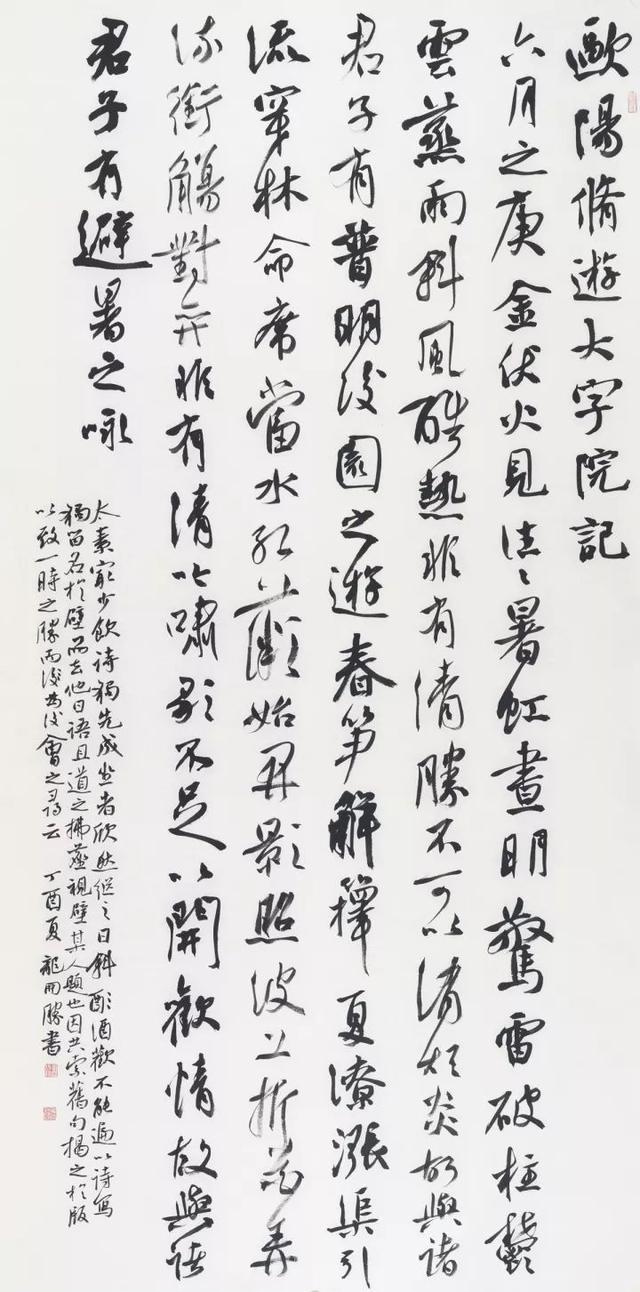 歐陽脩遊大字院記
六月之庚金伏火見往〻暑虹晝明驚雷破柱鬱
雲蒸雨斜風酷熱非有清勝不可以消煩炎故與諸
君子有普明後園之遊春筍解籜夏潦漲渠引
流穿林命席當水紅薇始開影照波上折花弄
流銜觴對弈非有清吟嘯歌不足以開歡情故與諸
君子有避暑之咏
太素最少飲詩獨先成坐者欣然繼之日斜酌酒歡不能遍以詩寫
獨留名於壁而去他日語且道之拂塵視壁某人題也因共索舊句揭之於版
以致一時之勝而後為後會之尋云 丁酉夏 龍開勝書